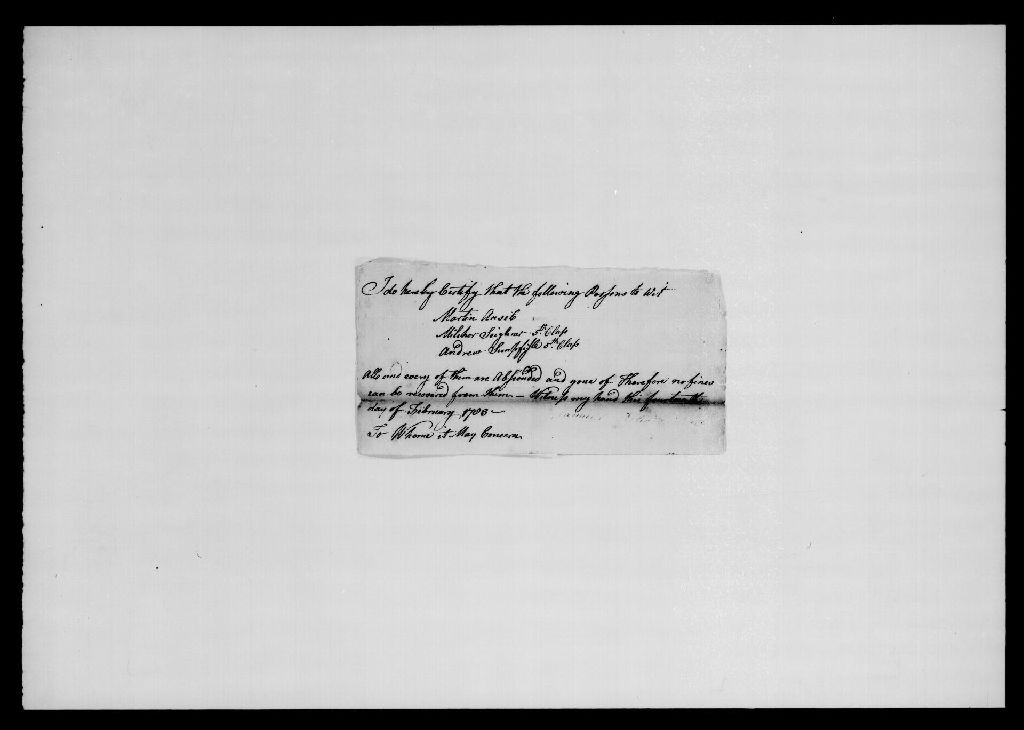 I do hereby Certify that the following Persons to Wit
Martin
Milcher 5th Class
Andrew 5th Class
All and every of them are Absconded and gone of Therefore no fines
can be recovered from them — Witness my hand this fourteenth
day of February 1783 —
To Whome it May Concern